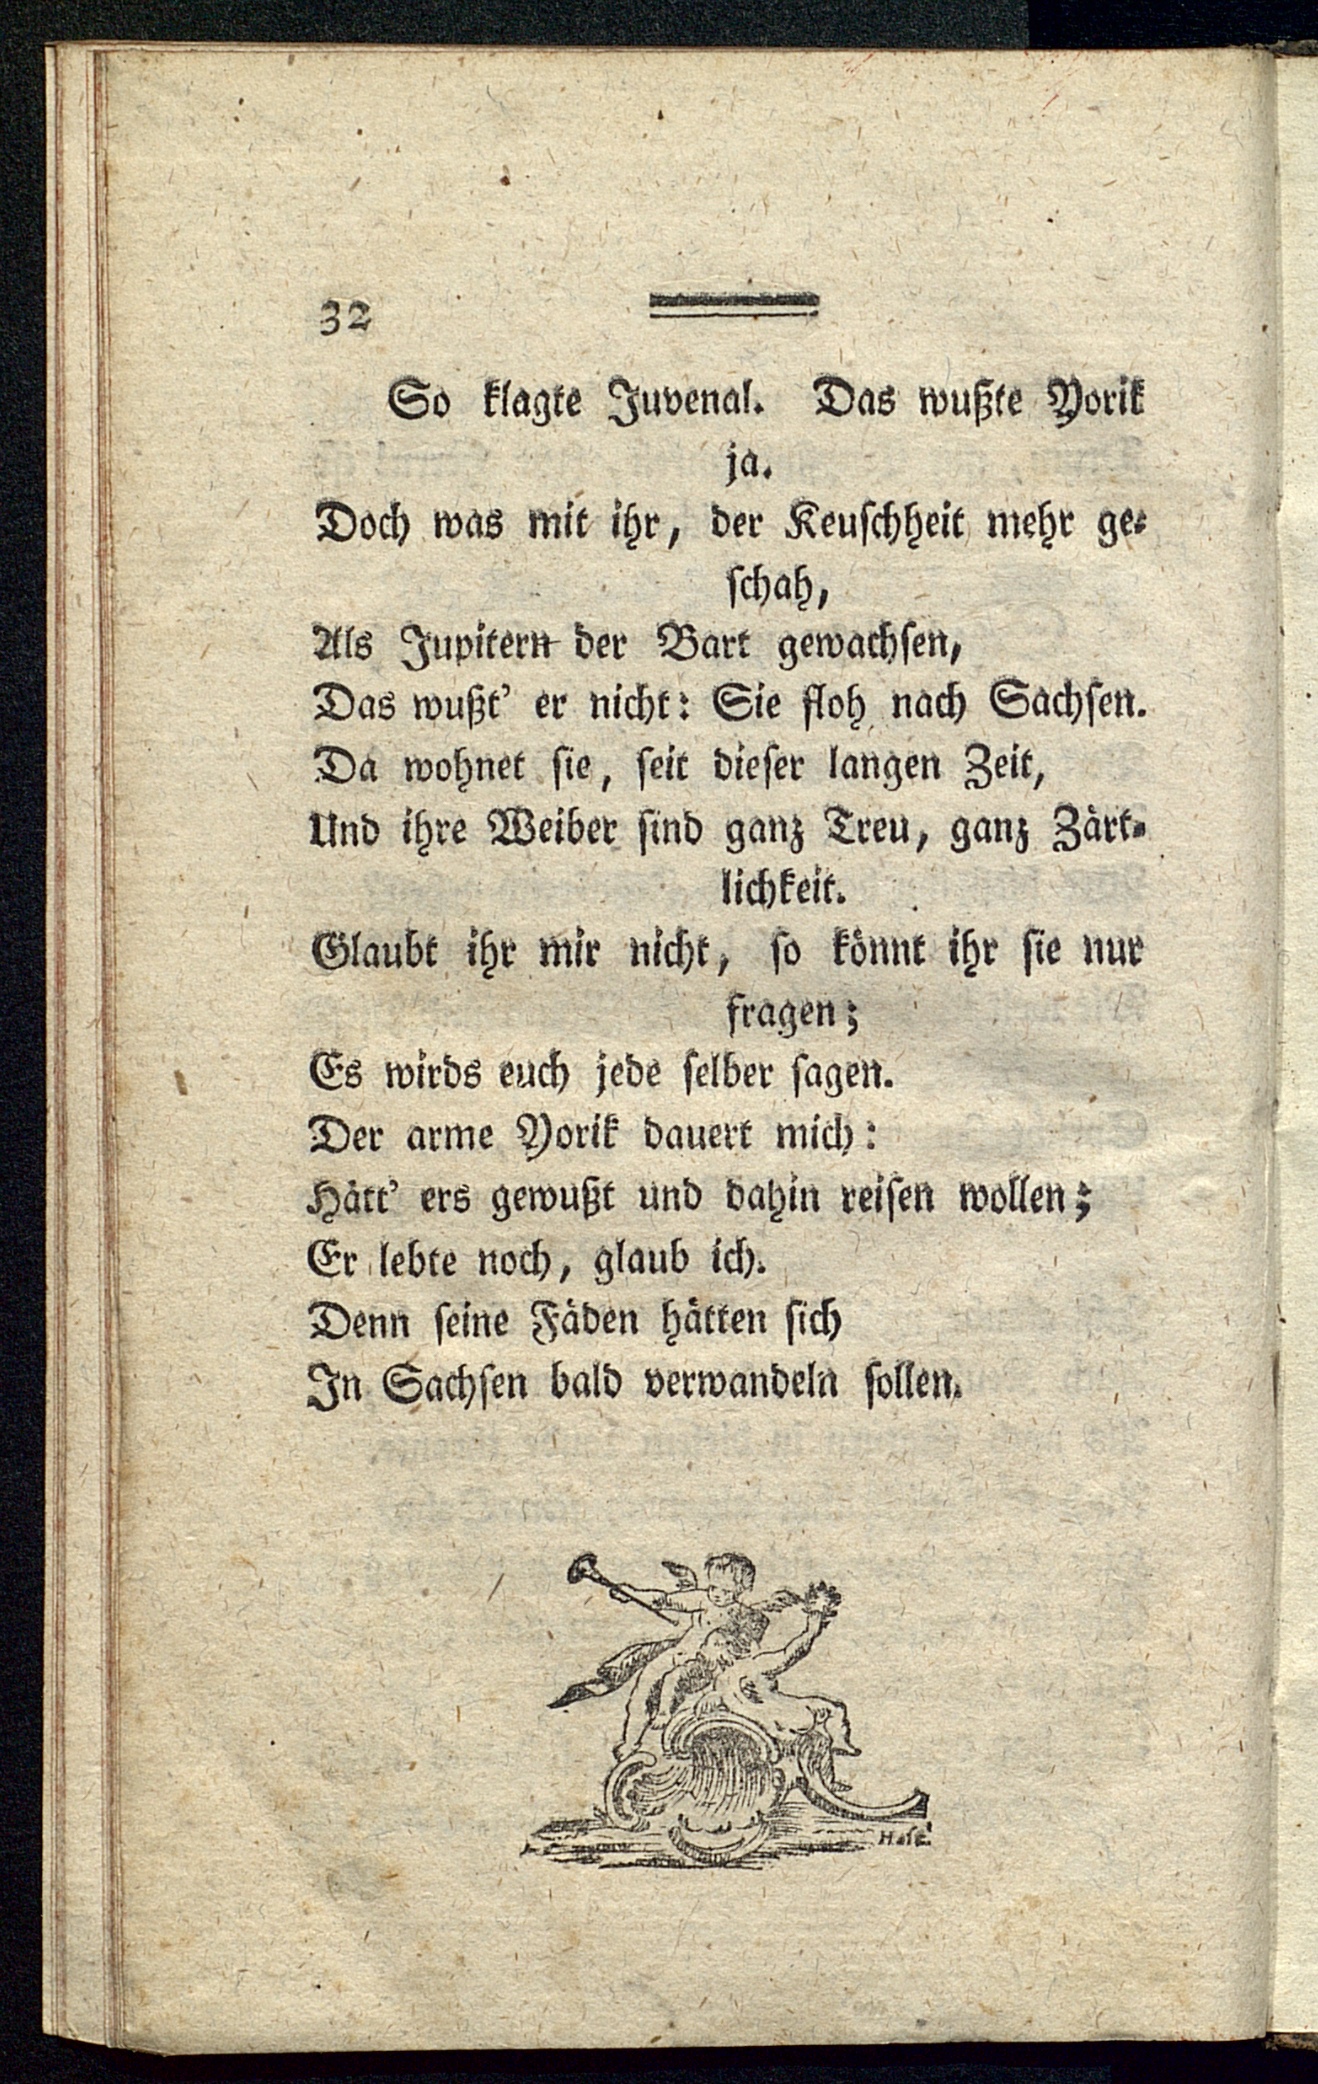 32
So klagte Juvenal. Das wußte Yorik
ja.
Doch was mit ihr, der Keuschheit mehr ge-
schah,
Als Jupitern der Bart gewachsen,
Das wußt' er nicht: Sie floh nach Sachsen.
Da wohnet sie, seit dieser langen Zeit,
Und ihre Weiber sind ganz Treu, ganz Zärt-
lichkeit.
Glaubt ihr mir nicht, so könnt ihr sie nur
fragen;
Es wirds euch jede selber sagen.
Der arme Yorik dauert mich:
Hätt' ers gewußt und dahin reisen wollen;
Er lebte noch, glaub ich.
Denn seine Fäden hätten sich
In Sachsen bald verwandeln sollen.